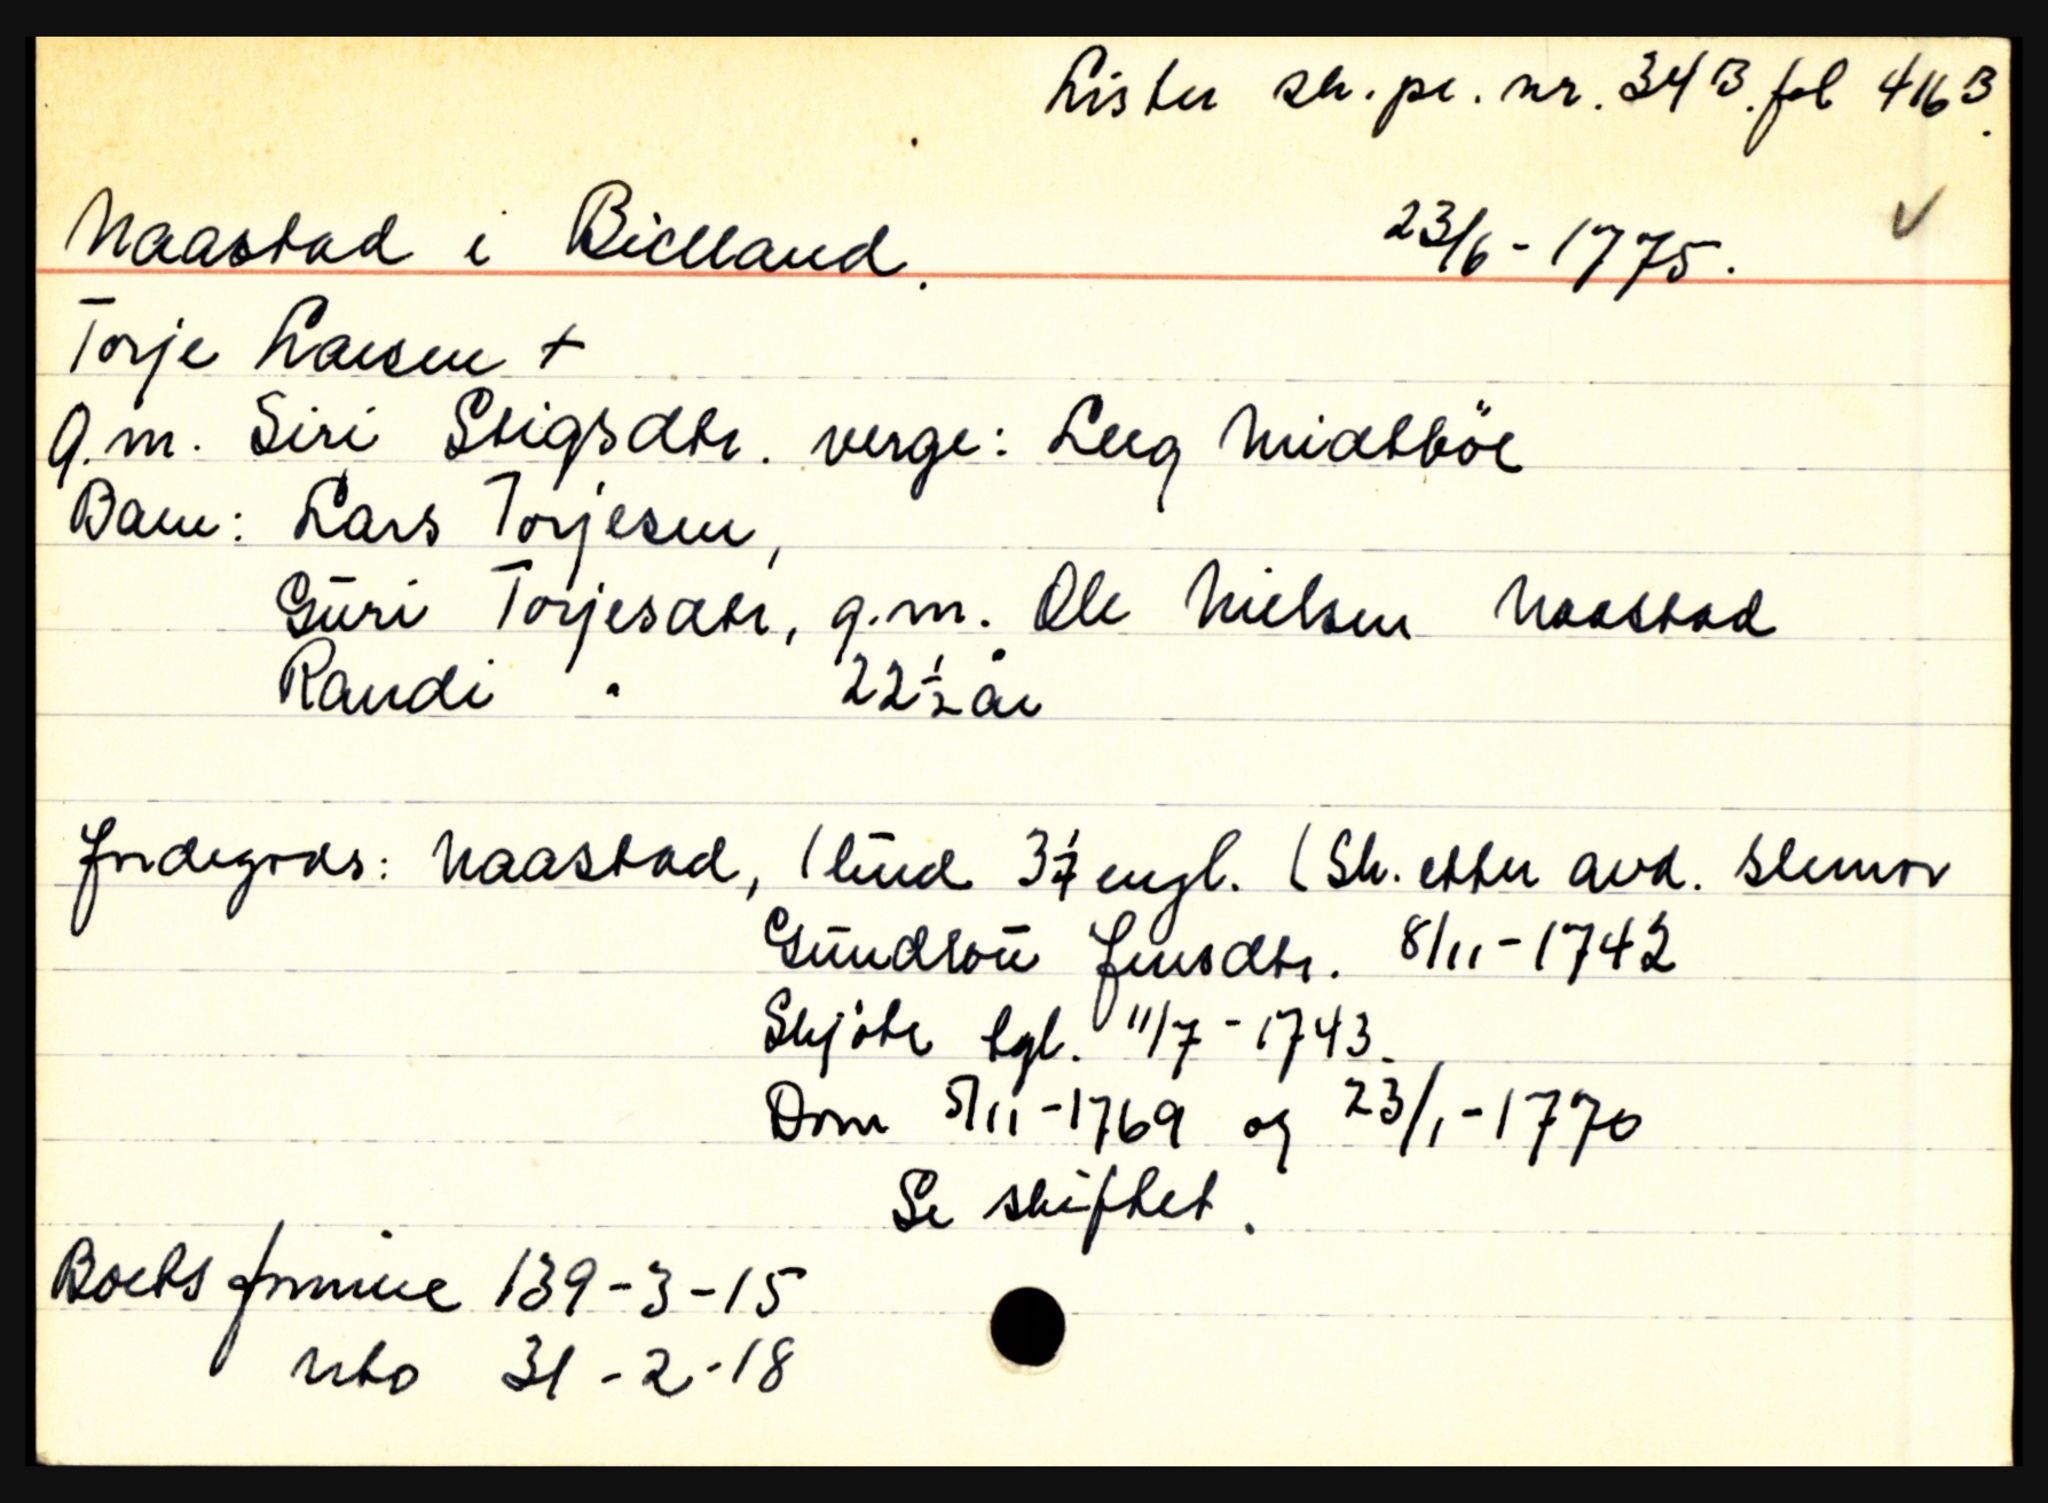 Lister sk. pr. nr. 34 B. fol 416 B.
Naastad i Bielland. 23/6 - 1775.
Torje Larsen +
g.m. Siri Stigsdtr. verge: Leeg Midtböe
Barn: Lars Torjesen,
Gūri Torjesdtr, g.m. Ole Nielsen Naastad
Randi " 22 1/2 år
Jordegods: Naastad, 1 hūd engl. (Sk. etter avd. stemor
Gūndlou Jensdtr. 8/11 - 1742
Skjöte tgl. 11/7 - 1743.
Dom 5/11 - 1769 og 23/1 - 1770
Se skiftet.
Boets formue 139 - 3 - 15
nto 31 - 2 - 18